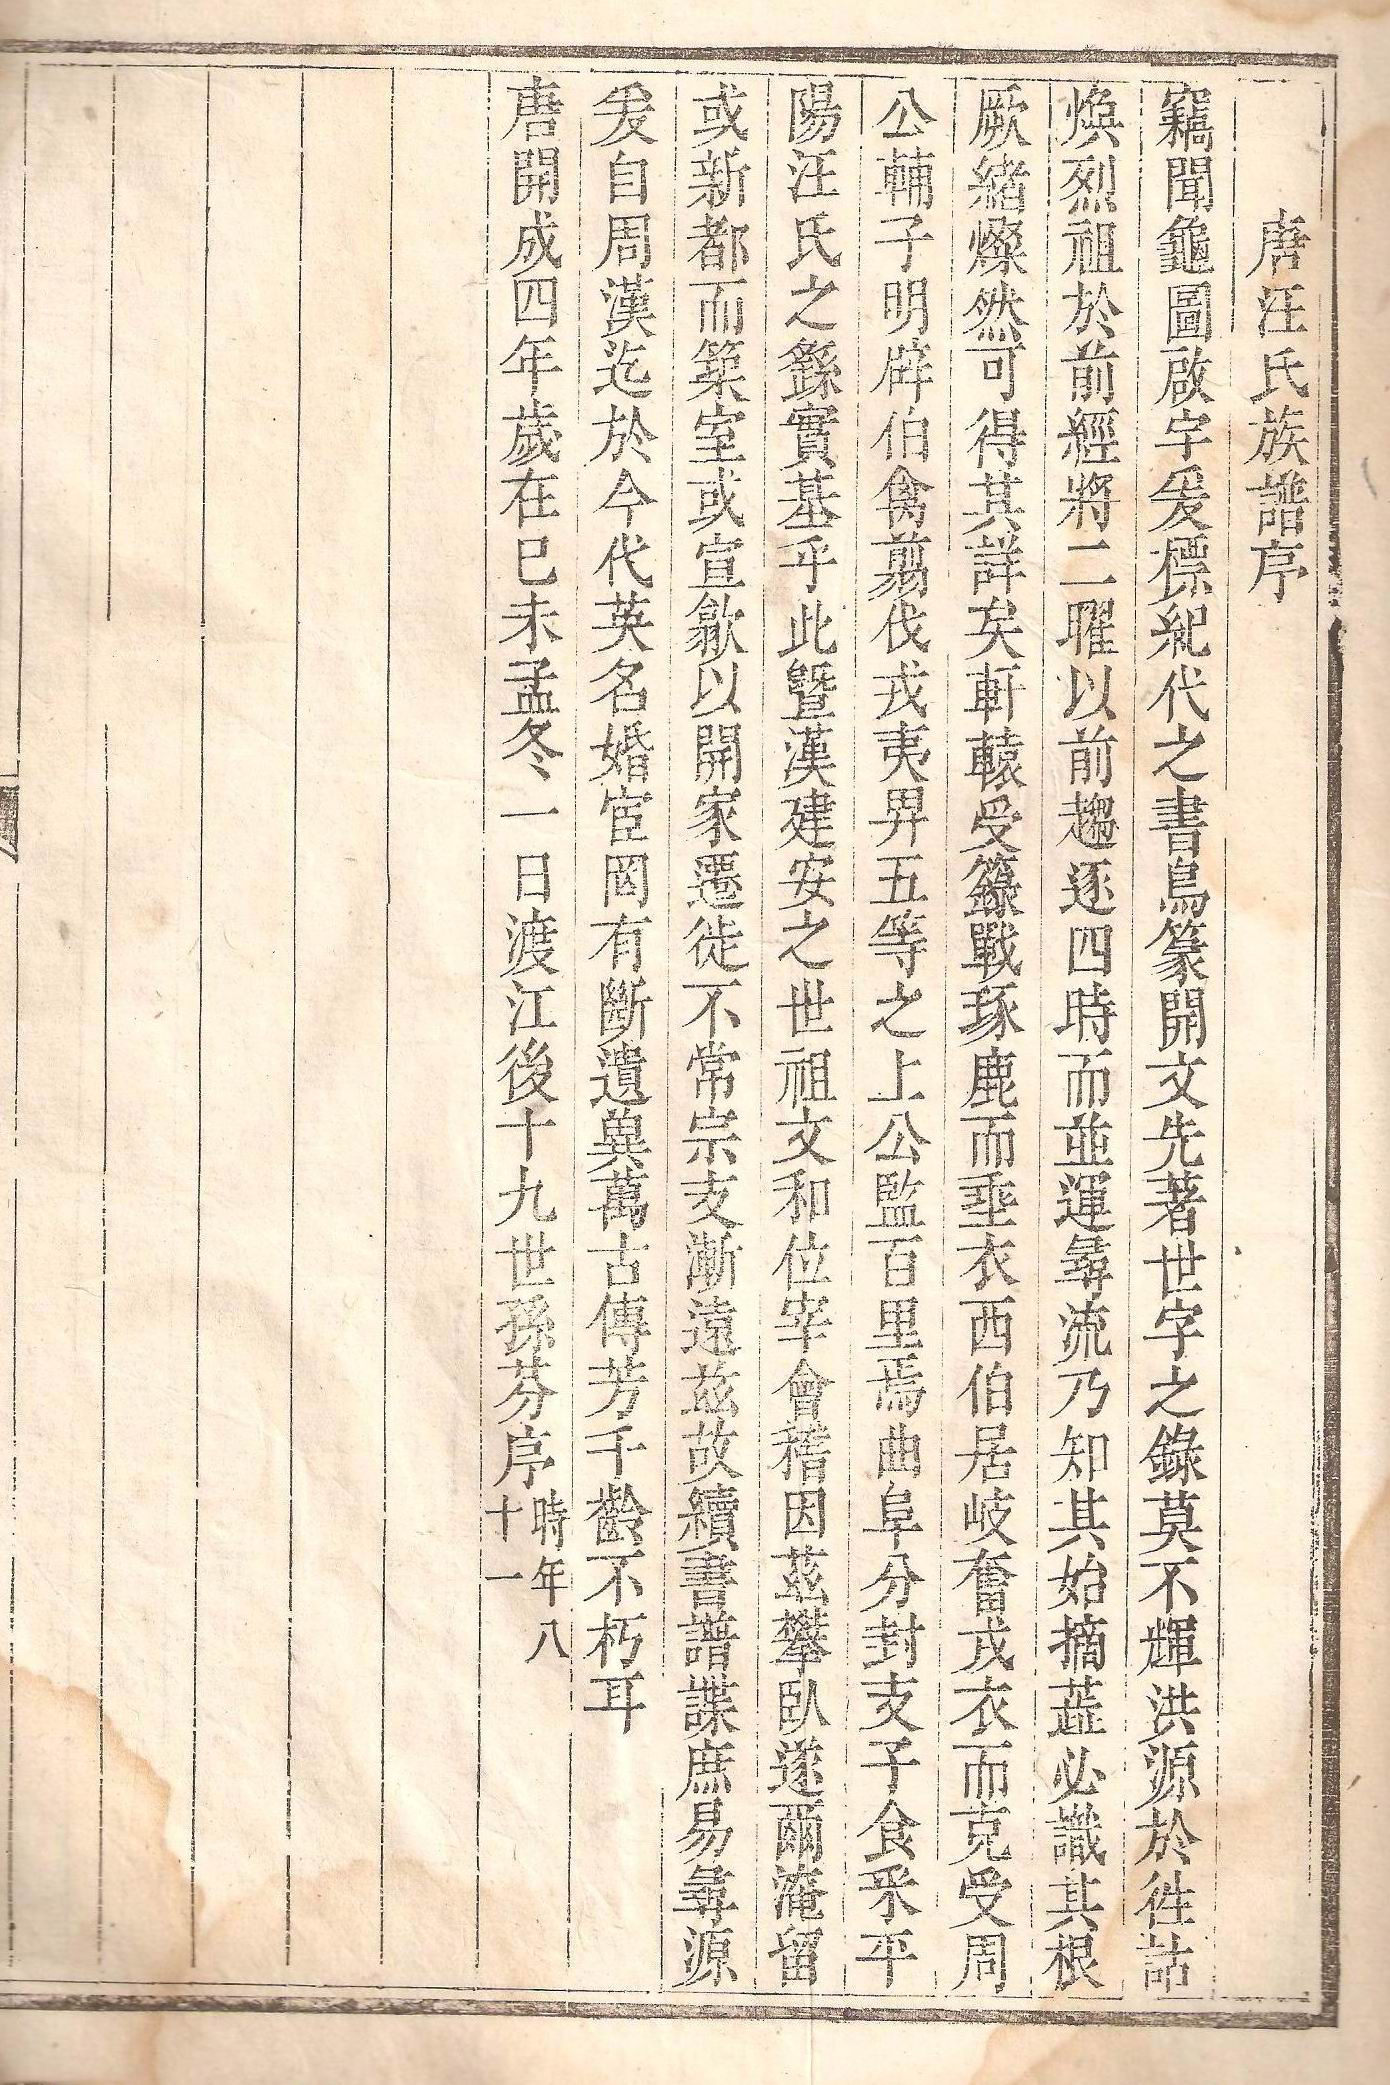 唐汪氏族譜序
竊聞龜圖啟字爰標紀代之書鳥篆開文先著世字之錄莫不輝洪源於徃詁
煥烈祖於前經將二曜以前趨逐四時而並運尋流乃知其始摘蘃必識其根
厥緒燦然可得其詳矣軒轅受籙戰琢鹿而埀衣西伯居岐奮戎衣而克受周
公輔子明辟伯禽翦伐戎夷畀五等之上公監百里焉曲阜分封支子食釆平
陽汪氏之繇實基乎此暨漢建安之世祖文和位宰會稽因茲攀臥遂爾淹留
或新都而築室或宣歙以開家遷徙不常宗支漸遠茲故續書譜諜庶易尋源
爰自周漢迄於今代英名婚宦罔有斷遺兾萬古傳芳千齡不朽耳
唐開成四年歲在巳未孟冬一日渡江後十九世孫芬序時年八
十一